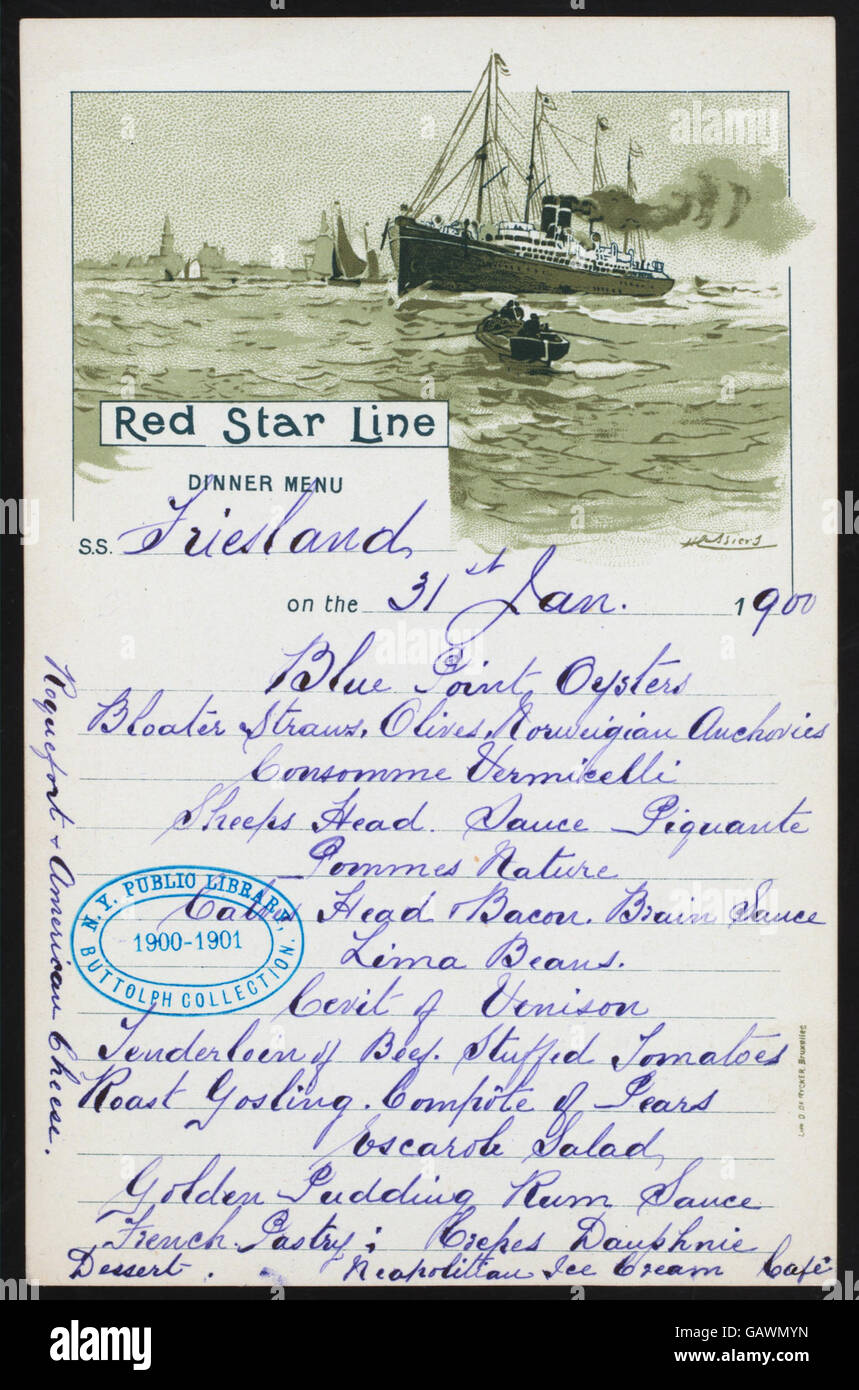 Red Star Line
DINNER MENU
S.S. Friesland
on the 31st Jan. 1900
Blue Point Oysters
Bloater Straws, Olives, Norweigian Anchovies
Consomme Vermicelli
Sheeps Head. Sauce Piquante
Pommes Nature
Calves Head & Bacon. Brain Sauce
Lima Beans.
Civit of Venison
Tenderloin of Beef. Stuffed Tomatoes
Roast Gosling. Compôte of Pears
Escarole Salad
Golden Pudding Rum Sauce
French Pastry; Crepes Dauphnie
Dessert. Neapolitian Ice Cream Café
Roquefort & American Cheese.
N. Y. PUBLIC LIBRARY,
1900-1901
BUTTOLPH COLLECTION.
H. Cassiers
Lith O. DE RYCKER, Bruxelles
alamy
alamy
Image ID: GAWMYN
www.alamy.com